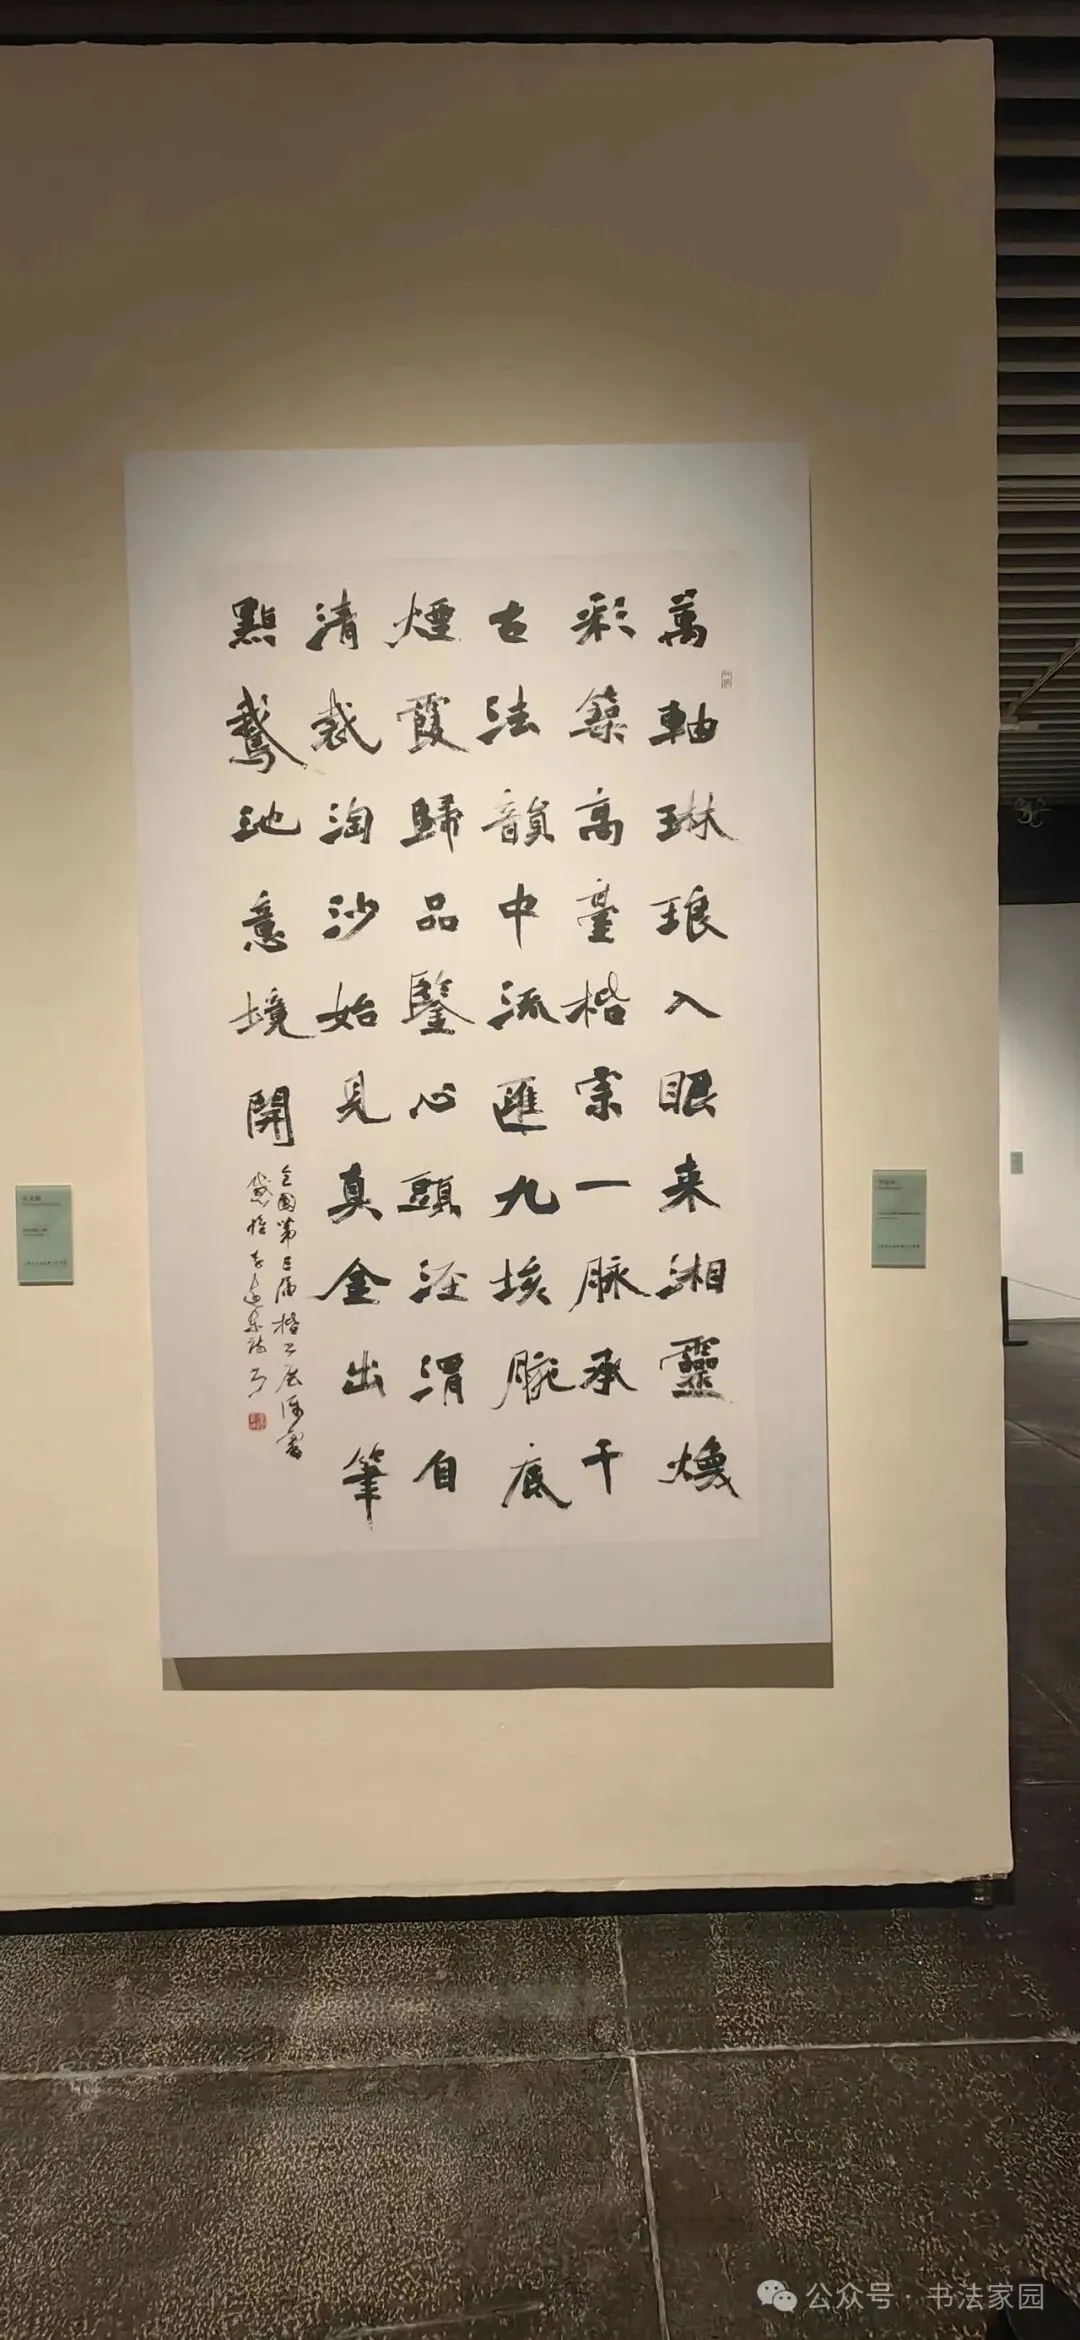 萬軸琳琅入眼来湘靈煥
彩築高臺楷宗一脉承千
古法韻中流匯九垓腕底
煙霞歸品鑒心頭涇渭自
清裁淘沙始見真金出筆
點鵞池意境開
全國第三届楷書展評審
感懷
公众号·书法家园